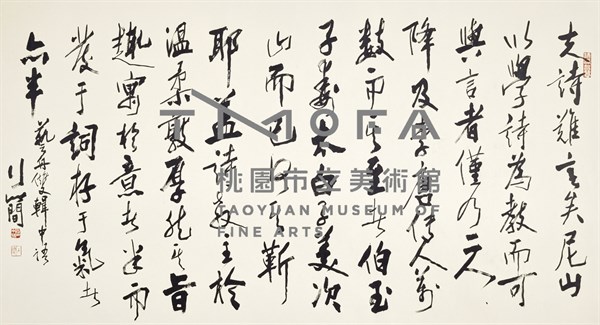 夫詩難言矣尼山
以學詩為教而可
與言者僅乃二人
降及傳人萬
數而至者伯玉
子太白子美次
山而已何可蘄
耶蓋詩教主於
溫柔敦厚然其旨
趣寓於意者半而
發于詞存于氣者
亦半
藝舟雙輯中語
行簡
TMoFA
桃園市立美術館
TAOYUAN MUSEUM OF
FINE ARTS